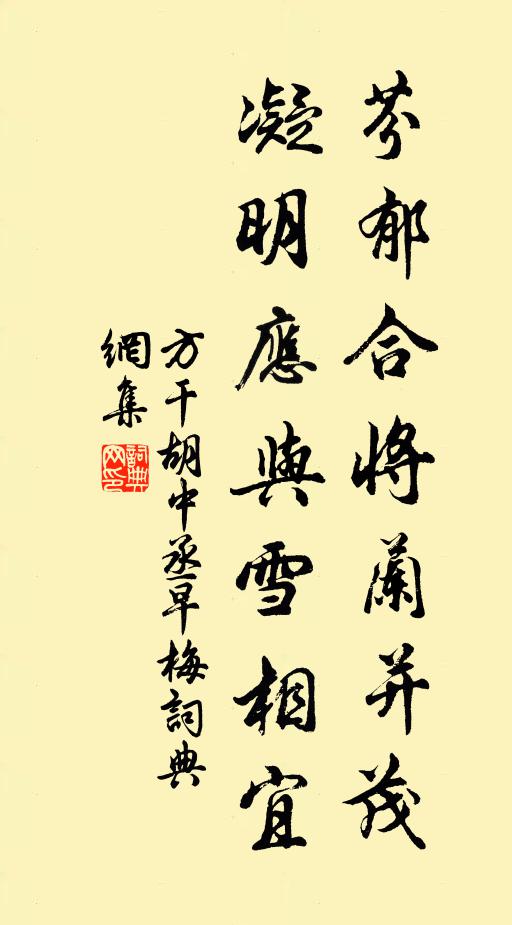 芬郁合将蘭并茂
凝明應與雪相宜
方干胡中丞早梅詞典
網集
詞典
网印